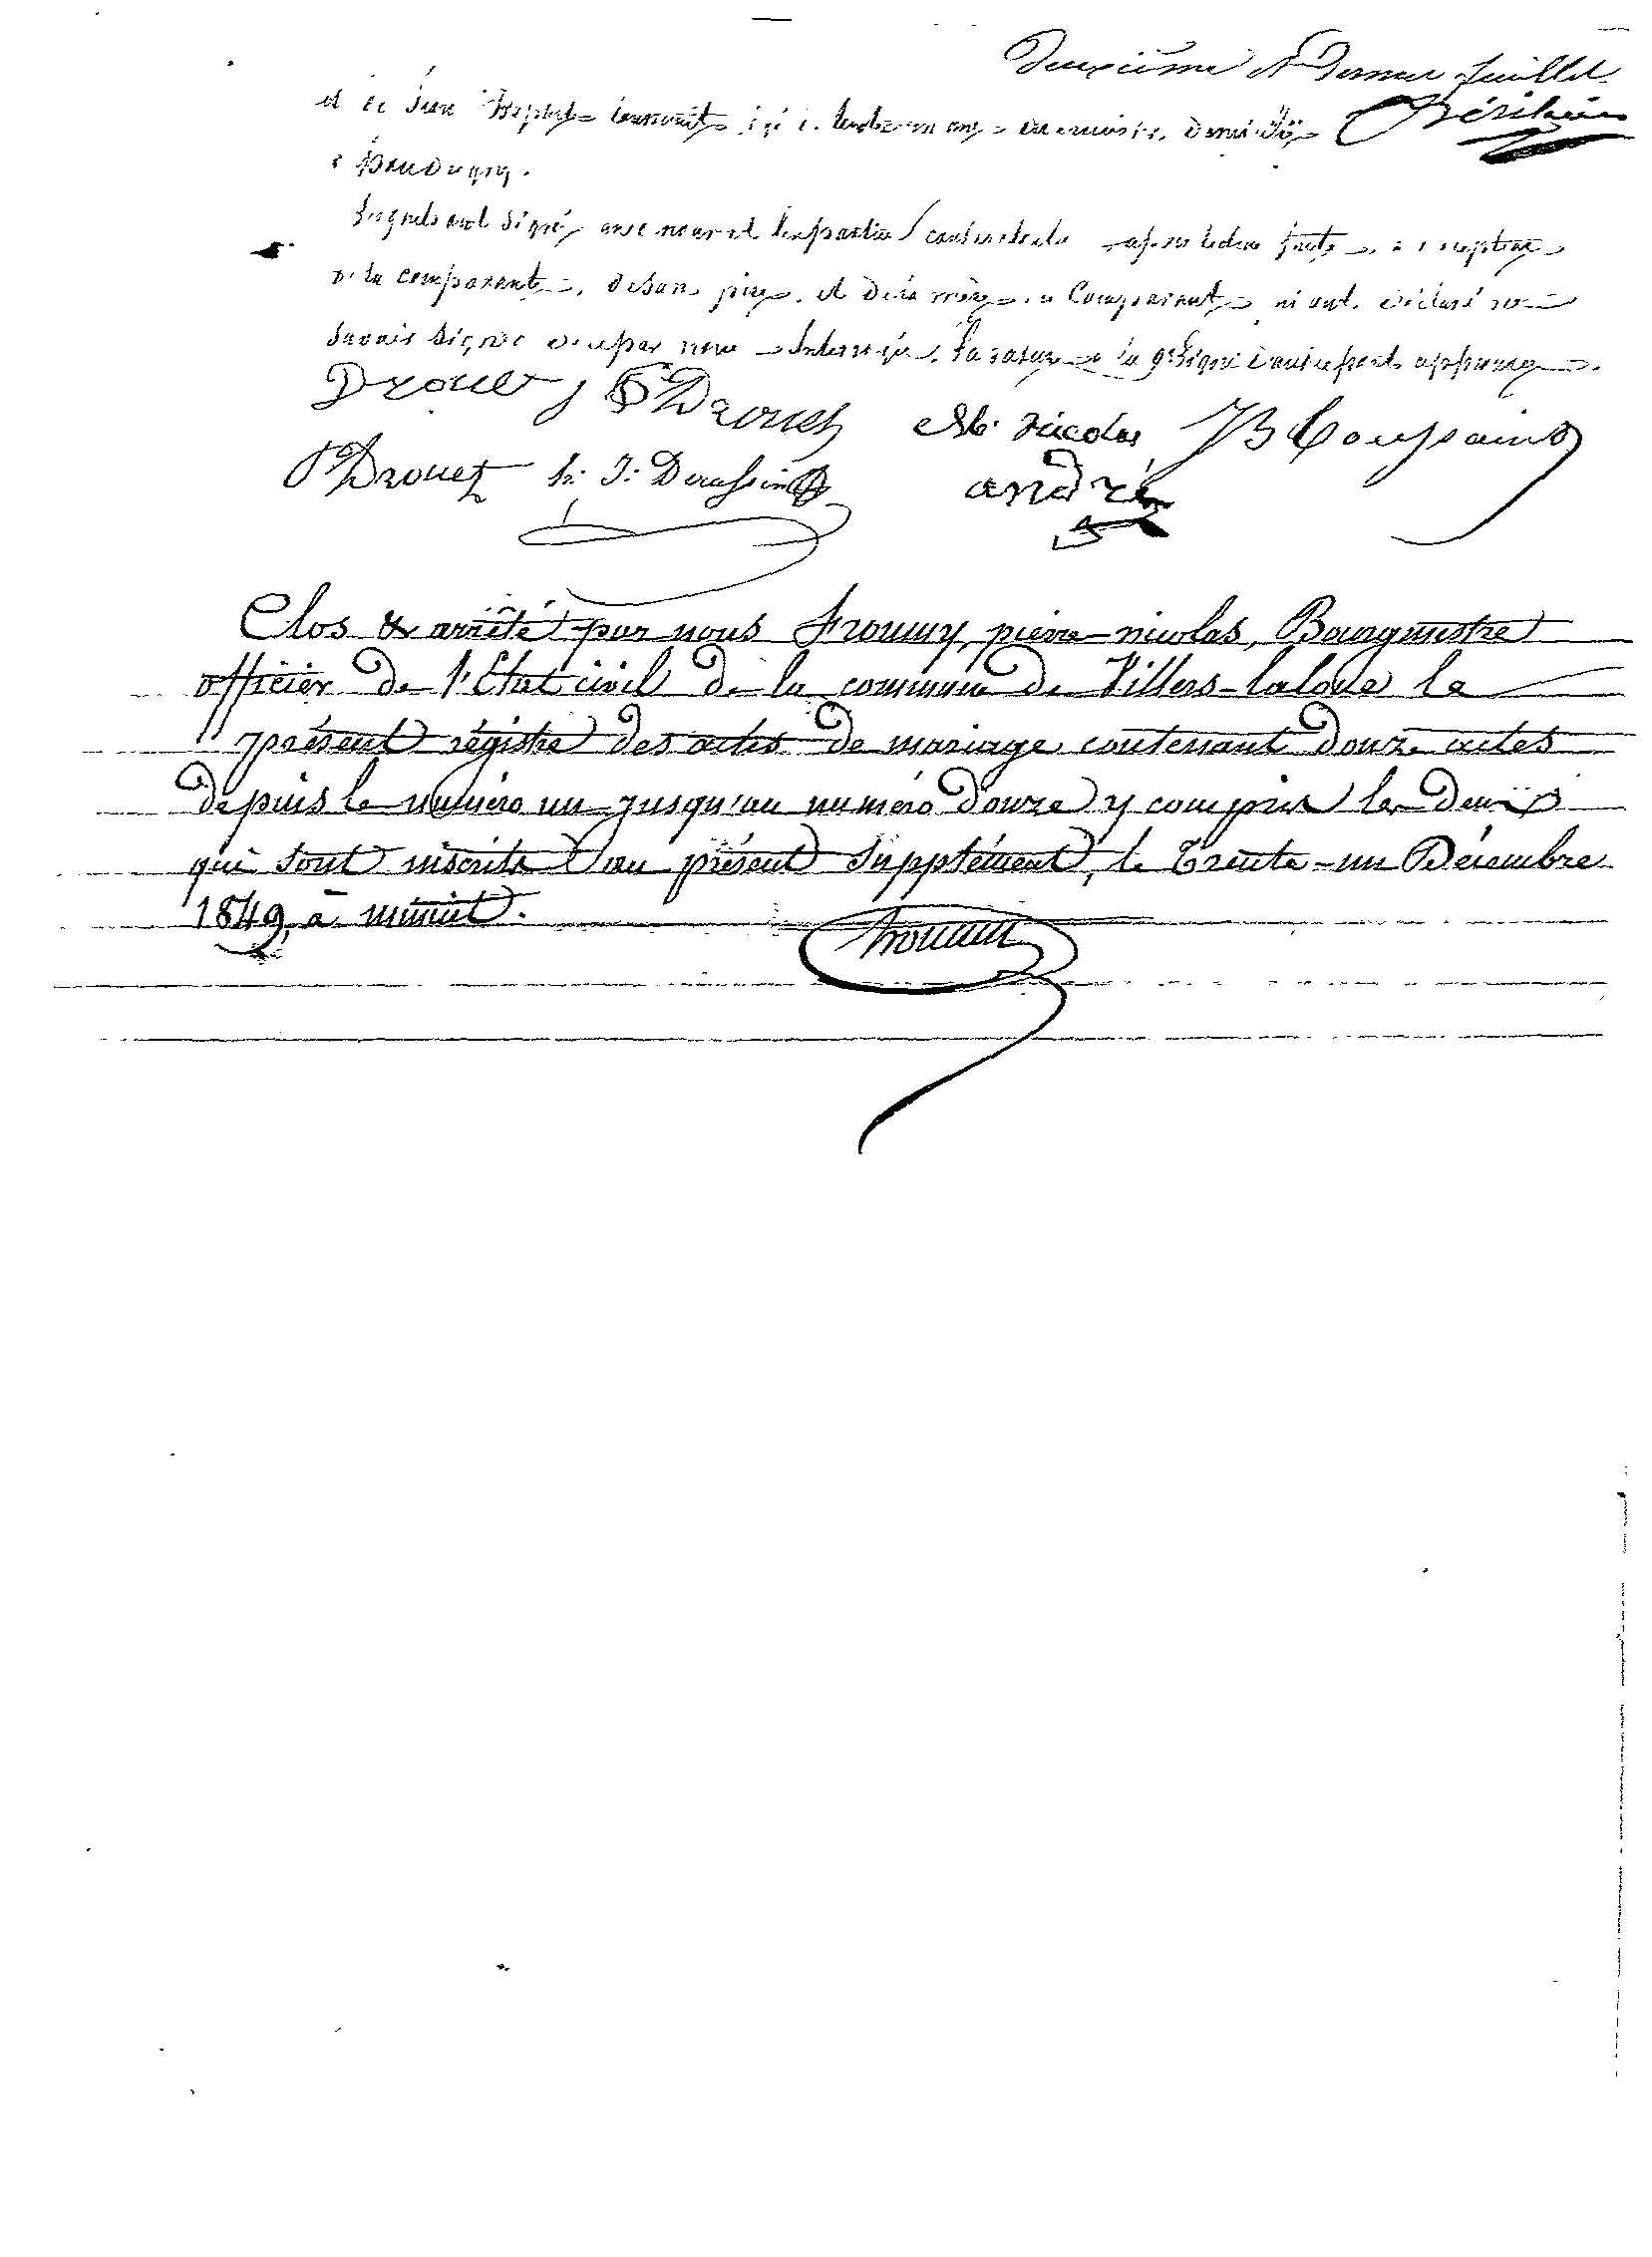 Deuxième et dernier feuillet.
et de Jean Baptiste toussaint, âgé de trente un ans, domicilié
à Baudrigny.
Lesquels ont signé avec nous et les parties contractantes après lecture faite, à l'exception
de la comparante, de son père, et de la mère du Comparant qui ont déclaré ne
savoir signer de ce par nous Interrogés. la rature à la 9e ligne d'autre part approuvée.
Drouet J Drouet Mle. Nicolas JB Toussaint
P Drouet h. J. Deraffin andré
Clos & arrêté par nous Fromuy, pierre-nicolas, Bourgmestre
officier de l'Etat civil de la commune de Villers-laloue le
présent régistre des actes de mariage contenant douze actes
depuis le numéro un jusqu'au numéro douze y compris les deux
qui sont inscrits au présent Supplément, le Trente-un Décembre
1849, à minuit.